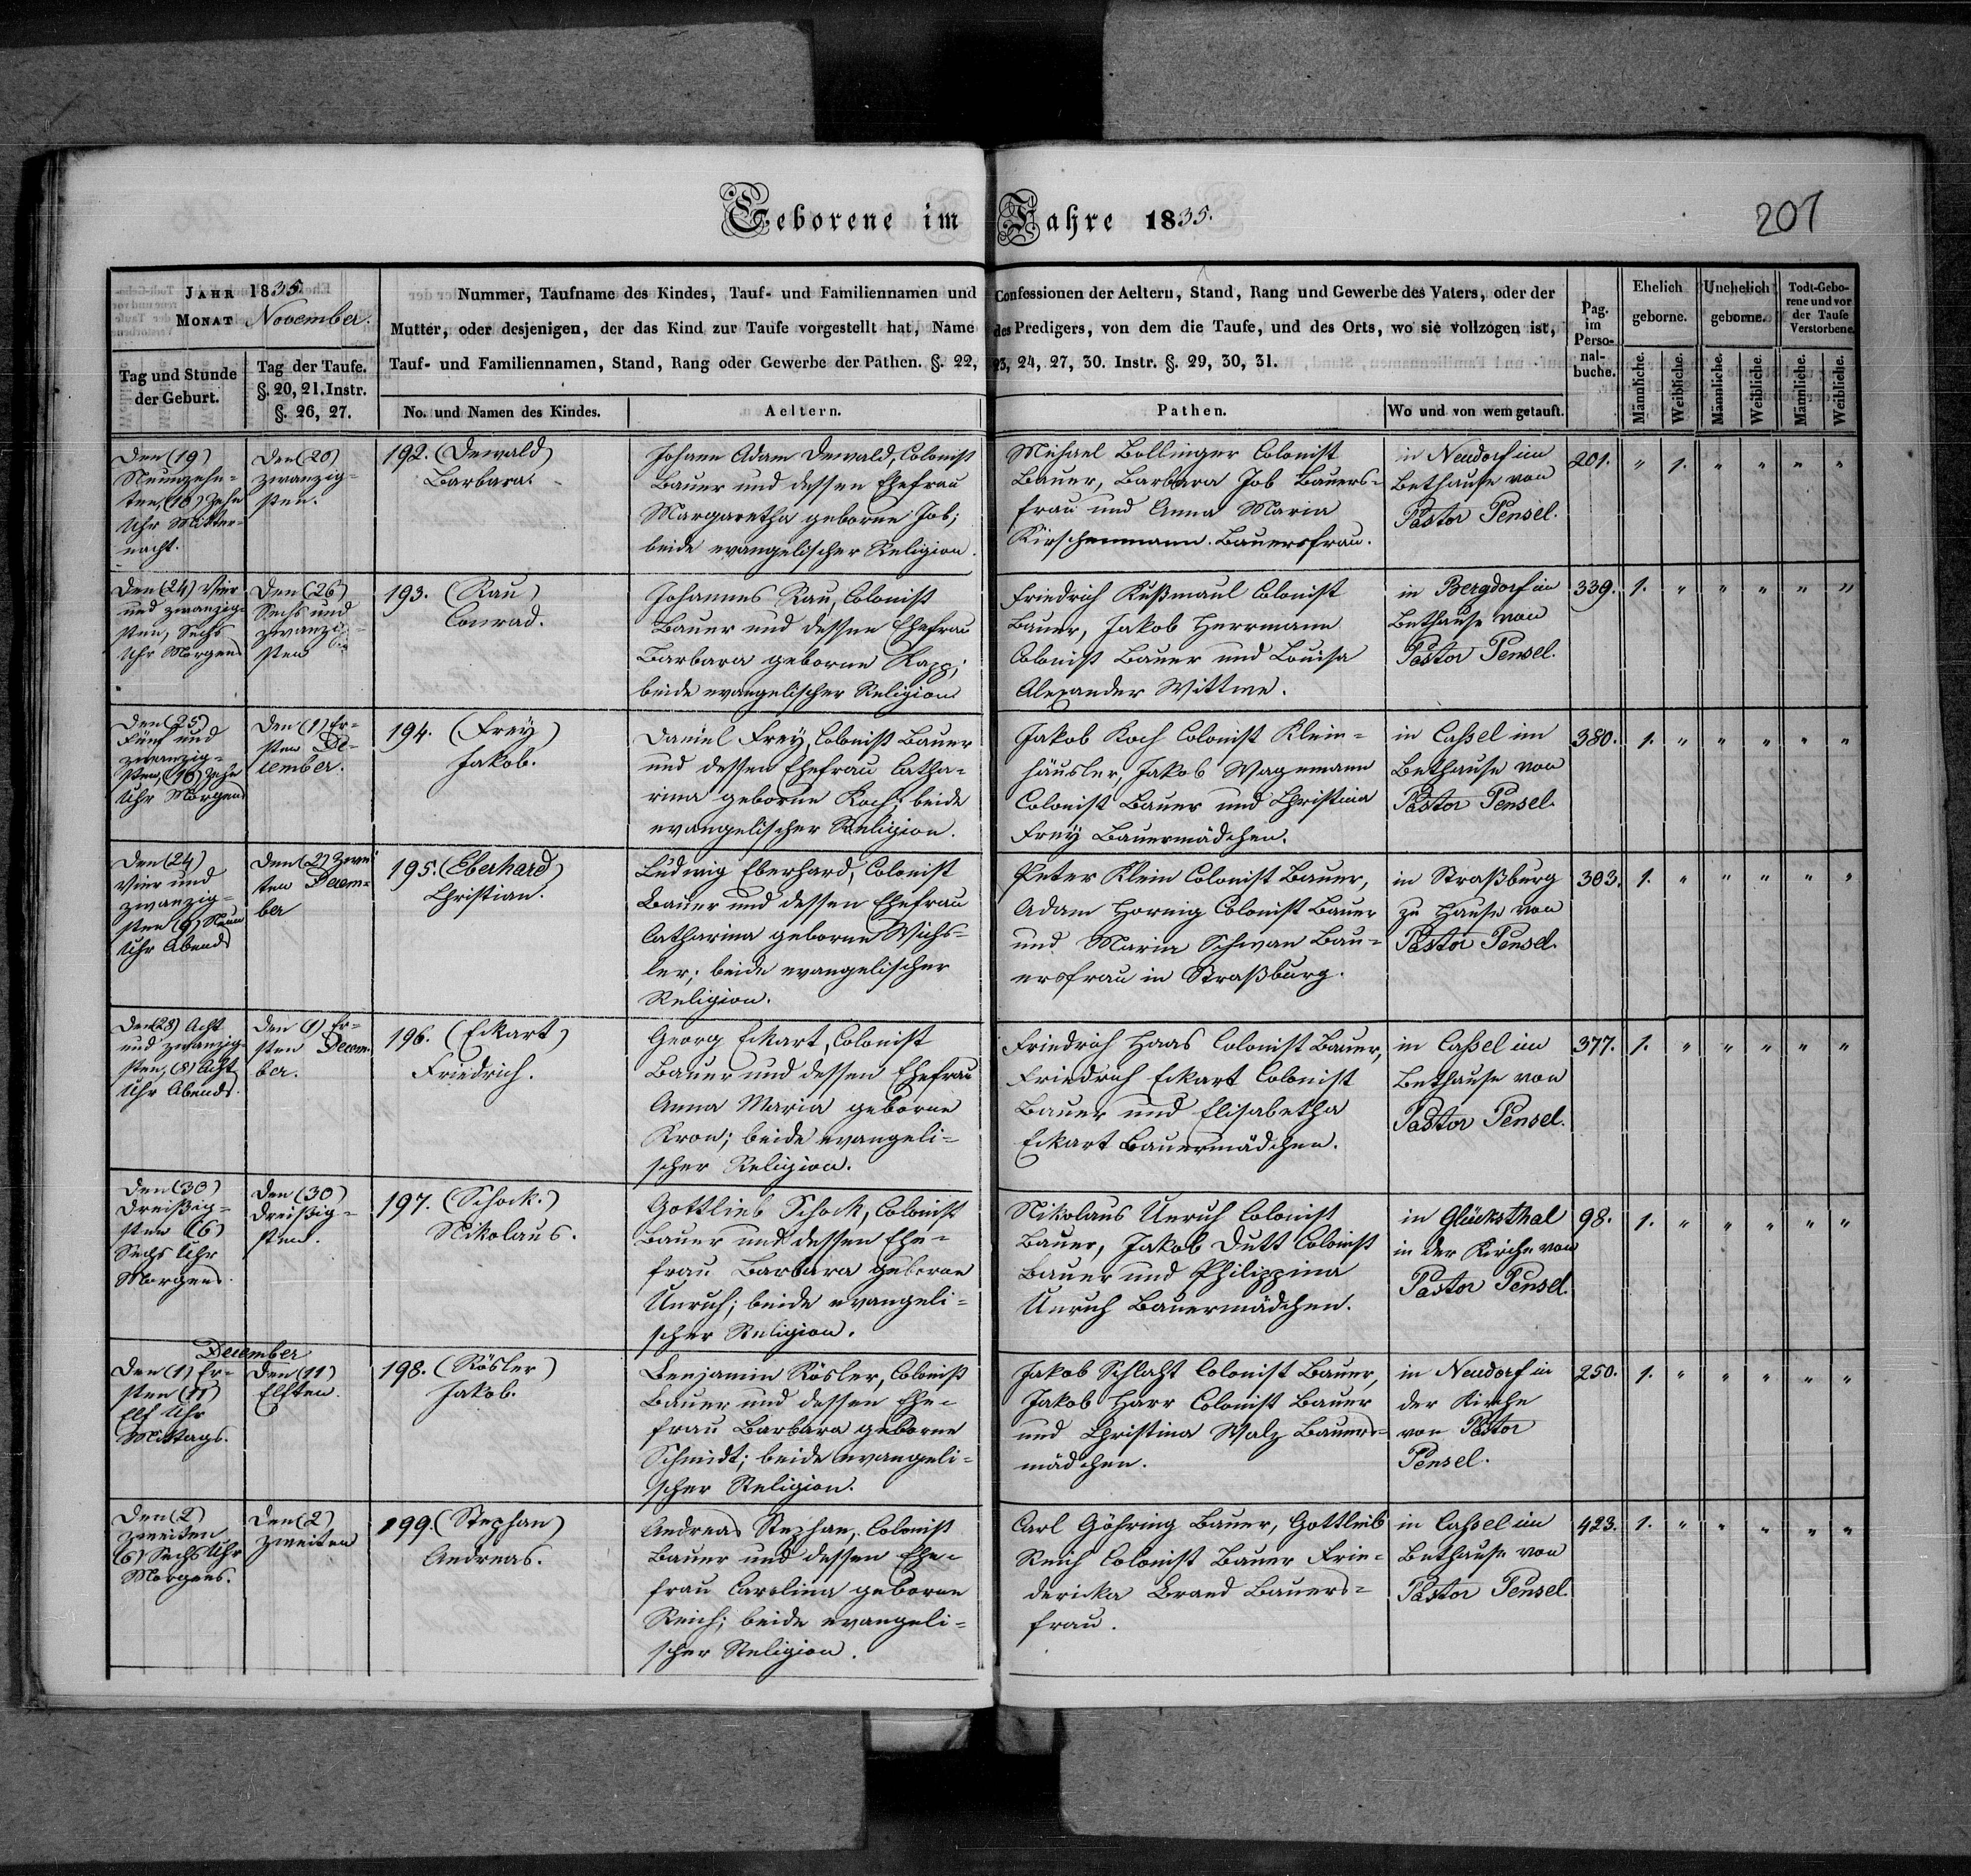 Geborene im Jahre 1835.
207
JAHR 1835.
MONAT November.
Tag und Stunde
der Geburt.
Tag der Taufe.
§. 20, 21. Instr.
§. 26, 27.
Nummer, Taufname des Kindes, Tauf- und Familiennamen und Confessionen der Aeltern, Stand, Rang und Gewerbe des Vaters, oder der
Mutter, oder desjenigen, der das Kind zur Taufe vorgestellt hat, Name des Predigers, von dem die Taufe, und des Orts, wo sie vollzogen ist,
Tauf- und Familiennamen, Stand, Rang oder Gewerbe der Pathen. §. 22, 23, 24, 27, 30. Instr. §. 29, 30, 31.
No. und Namen des Kindes.
Aeltern.
Pathen.
Wo und von wem getauft.
Pag.
im
Perso-
nal-
buche.
Ehelich
geborne.
Unehelich
geborne.
Todt-Gebo-
rene und vor
der Taufe
Verstorbene.
Männliche.
Weibliche.
Männliche.
Weibliche.
Männliche.
Weibliche.
Den (19)
Neunzehn-
ten, (10) Zehn
Uhr Mitter-
nacht.
Den (20)
zwanzig-
sten.
192. (Dewald)
Barbara.
Johann Adam Dewald, Colonist
Bauer und dessen Ehefrau
Margaretha geborne Job;
beide evangelischer Religion.
Michael Bollinger Colonist
Bauer, Barbara Job Bauers-
frau und Anna Maria
Kirschenmann. Bauersfrau.
in Neudorf im
Bethause von
Pastor Pensel.
201. " 1. " " " "
Den (24) Vier
und zwanzig-
sten, Sechs
Uhr Morgens
Den (26)
Sechs und
zwanzig-
sten
193. (Rau)
Conrad.
Johannes Rau, Colonist
Bauer und dessen Ehefrau
Barbara geborne Rapp;
beide evangelischer Religion
Friedrich Kußmaul Colonist
Bauer, Jakob Herrmann
Colonist Bauer und Louisa
Alexander Wittwe.
in Bergdorf im
Bethause von
Pastor Pensel.
339. 1. " " " " "
Den (25)
Fünf und
zwanzig-
sten, (10) Zehn
Uhr Morgens
Den (1) Er-
sten De-
cember.
194. (Frey)
Jakob.
Daniel Frey, Colonist Bauer
und dessen Ehefrau Catha-
rina geborne Koch; beide
evangelischer Religion.
Jakob Koch Colonist Klein-
häusler, Jakob Wagemann
Colonist Bauer und Christina
Frey Bauermädchen.
in Caßel im
Bethause von
Pastor Pensel.
380. 1. " " " " "
Den (24)
Vier und
zwanzig-
sten (9) Neun
Uhr Abends
Den (2) Zwei
ten Decem-
ber
195. (Eberhard)
Christian.
Ludwig Eberhard, Colonist
Bauer und dessen Ehefrau
Catharina geborne Wichs-
ler; beide evangelischer
Religion.
Peter Klein Colonist Bauer,
Adam Hornig Colonist Bauer
und Maria Schwan Bau-
ersfrau in Straßburg.
in Straßburg
zu Hause von
Pastor Pensel.
303. 1. " " " " "
Den (28) Acht
und zwanzig-
sten, (8) Acht
Uhr Abends.
Den (1) Er-
sten Decem-
ber.
196. (Eckart)
Friedrich.
Georg Eckart, Colonist
Bauer und dessen Ehefrau
Anna Maria geborne
Kron; beide evangeli-
scher Religion.
Friedrich Haas Colonist Bauer,
Friedrich Eckart Colonist
Bauer und Elisabetha
Eckart Bauermädchen.
in Caßel im
Bethause von
Pastor Pensel.
377. 1. " " " " "
Den (30)
Dreißig-
sten (6)
Sechs Uhr
Morgens.
Den (30)
Dreißig-
sten.
197. (Schock.)
Nikolaus.
Gottlieb Schock, Colonist
Bauer und dessen Ehe-
frau Barbara geborne
Unruh; beide evangeli-
scher Religion.
Nikolaus Unruh Colonist
Bauer, Jakob Dutt Colonist
Bauer und Philippina
Unruh Bauermädchen.
in Glücksthal
in der Kirche von
Pastor Pensel.
98. 1. " " " " "
December
Den (1) Er-
sten (11)
Elf Uhr
Mittags.
Den (11)
Elften.
198. (Rösler)
Jakob.
Benjamin Rösler, Colonist
Bauer und dessen Ehe-
frau Barbara geborne
Schmidt; beide evangeli-
scher Religion.
Jakob Schlaht Colonist Bauer,
Jakob Harr Colonist Bauer
und Christina Walz Bauers-
mädchen.
in Neudorf in
der Kirche
von Pastor
Pensel.
250. 1. " " " " "
Den (2)
zweiten
(6) Sechs Uhr
Morgens.
Den (2)
zweiten
199. (Stephan)
Andreas.
Andreas Stephan, Colonist
Bauer und dessen Ehe-
frau Carolina geborne
Reich; beide evangeli-
scher Religion.
Carl Göhring Bauer, Gottlieb
Reich Colonist Bauer Frie-
dericka Brand Bauers-
frau.
in Caßel im
Bethause von
Pastor Pensel.
423. 1. " " " " "